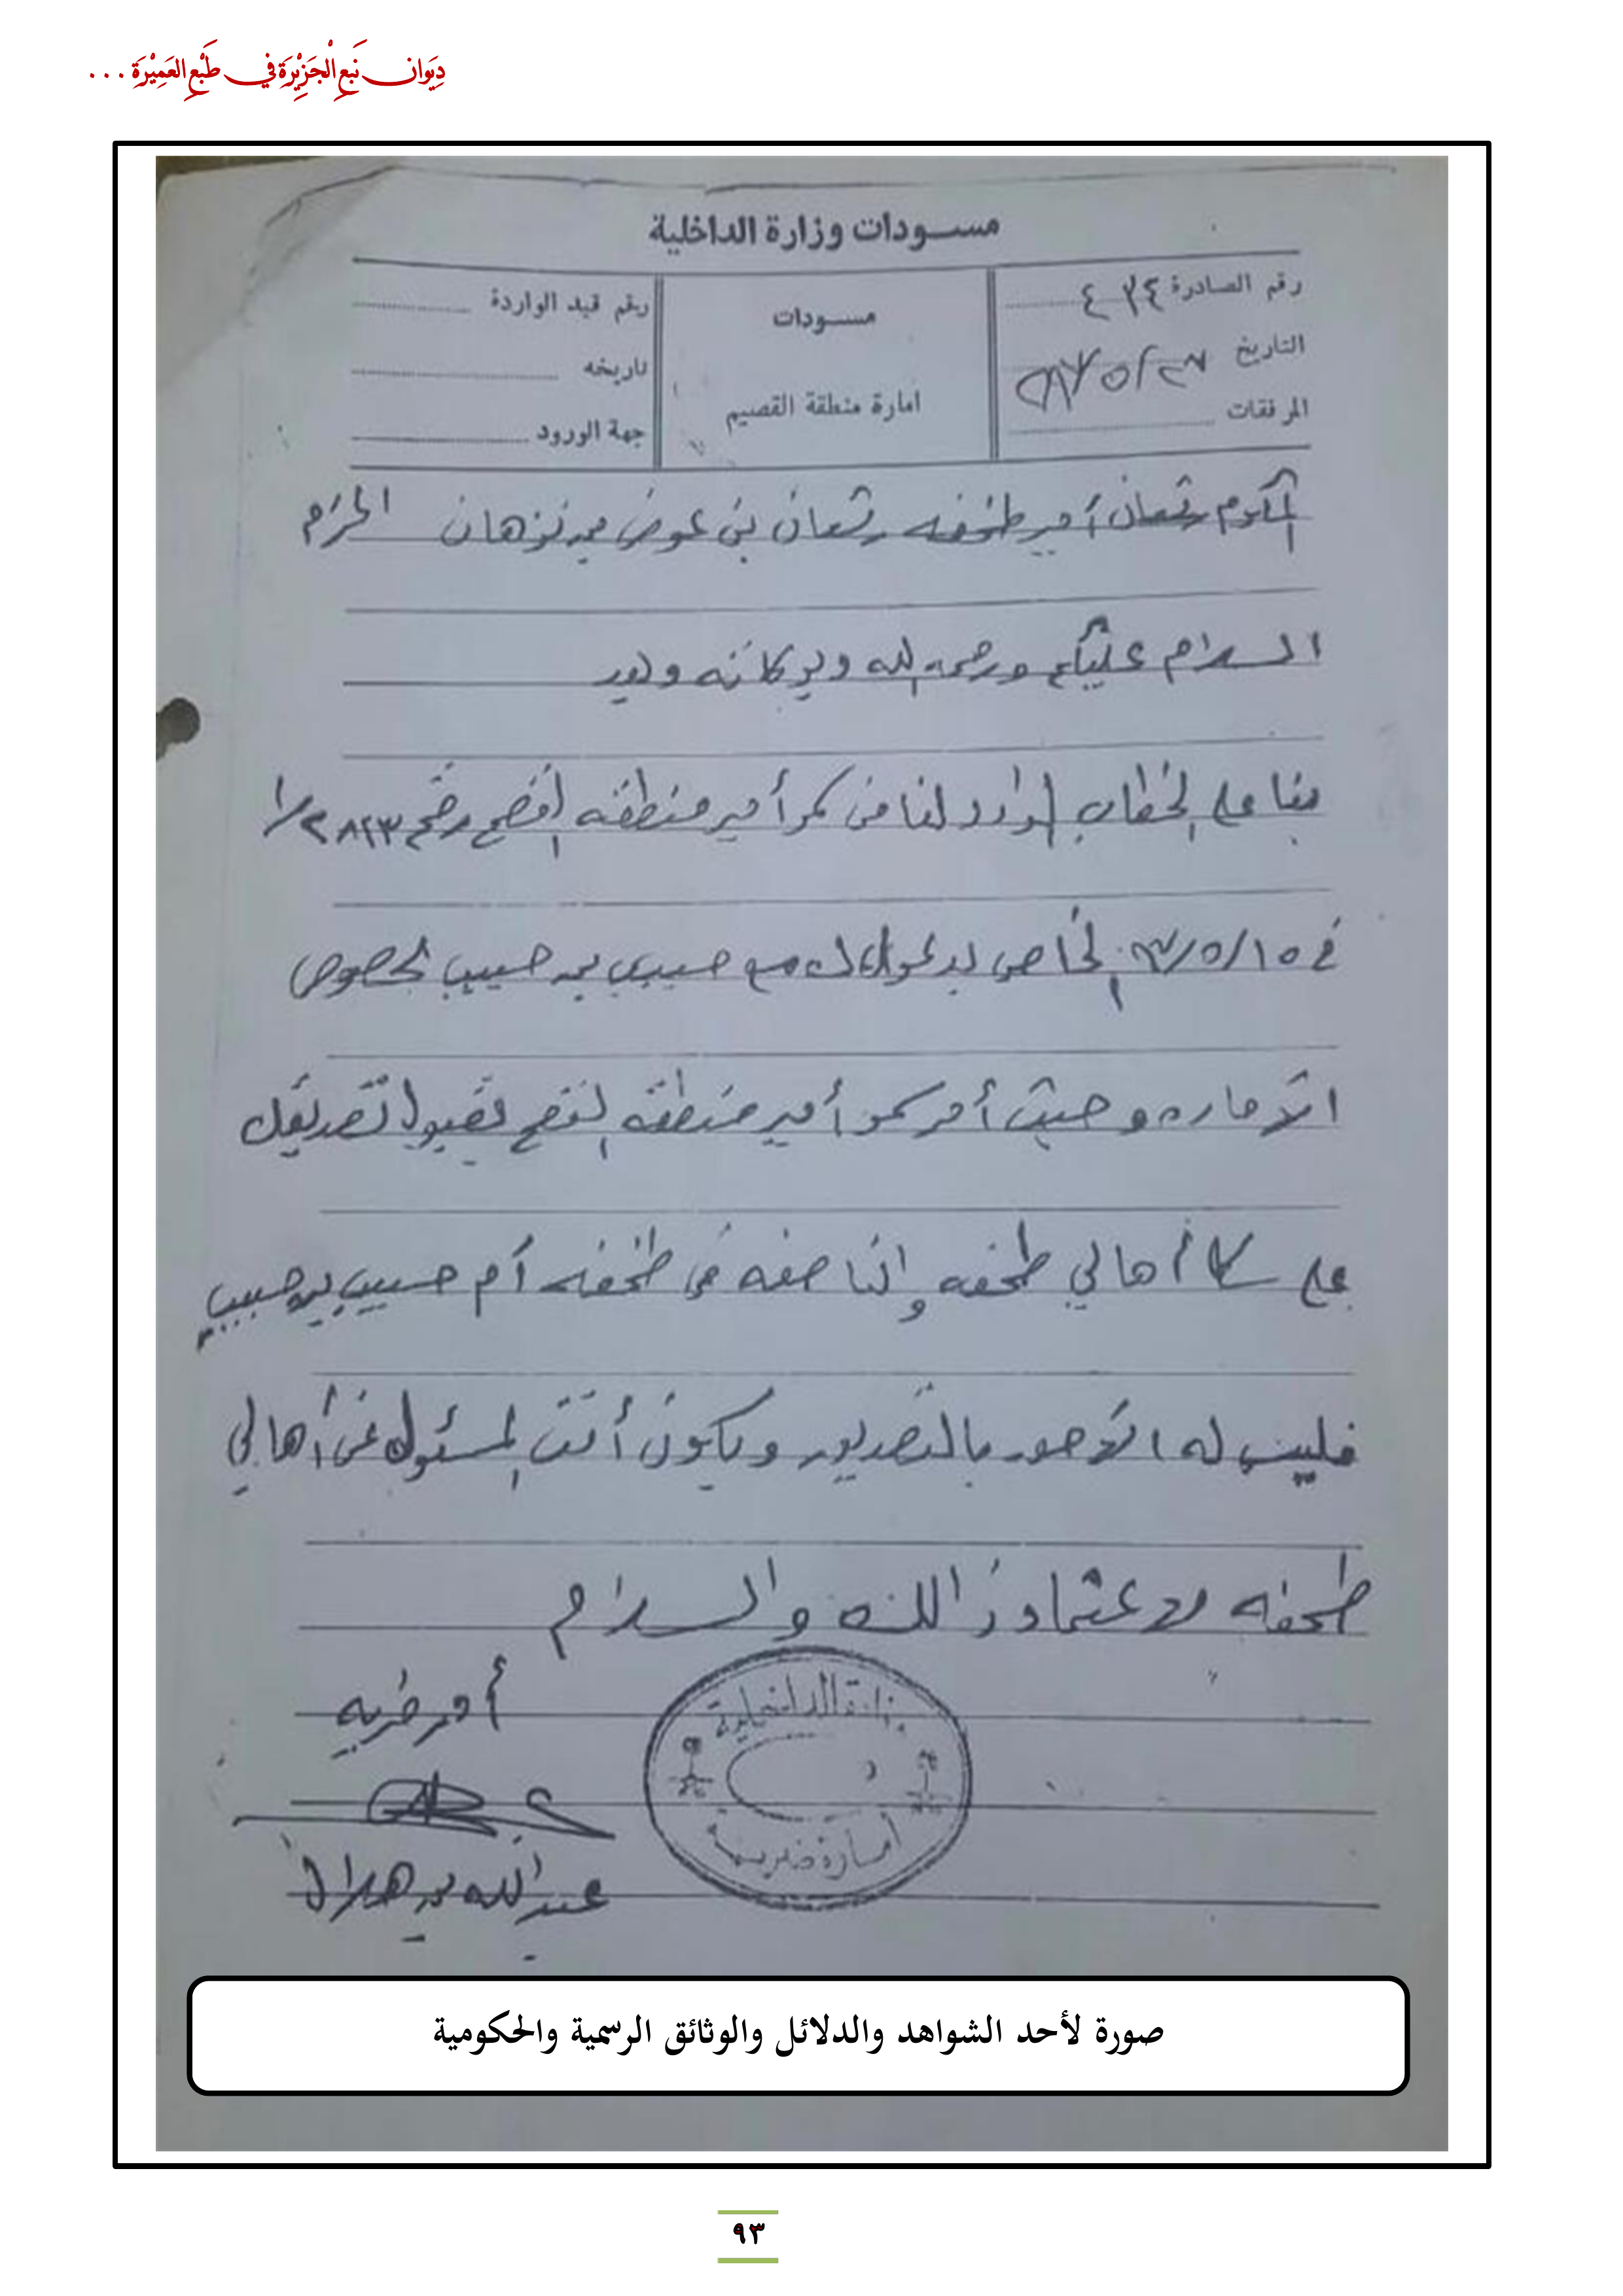 دِيَوان نَبعِ الْجَزِيْرَة في طَبْعِ العَمِيْرَة ...
مسودات وزارة الداخلية
رقم الصادرة ٤٣٤
التاريخ
المرفقات
مسودات
امارة منطقة القصيم
رقم قيد الواردة
تاريخه
جهة الورود
المكرم شعان أمير طخفه شعان بن عوض بن نزهان المحترم
السلام عليكم ورحمة الله وبركاته وبعد
بنا على الخطاب الوارد لنا من سمو أمير منطقه القصيم رقم
في ١٥/٥/ الخاص مع حبيب بن حبيب بخصوص
الاماره وحيث أمر سمو أمير منطقه القصيم بقبول تصديقك
على أهالي طخفه والناصفه في طخفه أم حبيب بن حبيب
فليس له الاحور بالتصديق وتكون أنت المسئول عن أهالي
طخفه لاعتماد ذالك والسلام
أمير ضريه
عبد الله بن هلال
وزارة الداخلية
امارة ضرية
صورة لأحد الشواهد والدلائل والوثائق الرسمية والحكومية
٩٣